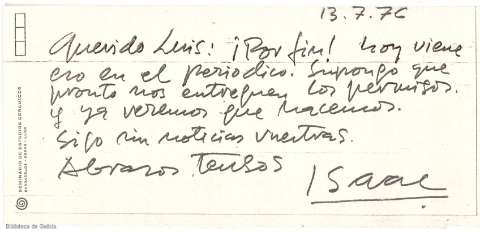 13.7.76
Querido Luis: ¡Por fin! hoy viene
eso en el periodico. Supongo que
pronto nos entreguen los permisos.
y ya veremos que hacemos.
Sigo sin noticias vuestras.
Abrazos
Isaac
SEMINARIO DE ESTUDIOS CERAMICOS
Biblioteca de Galicia